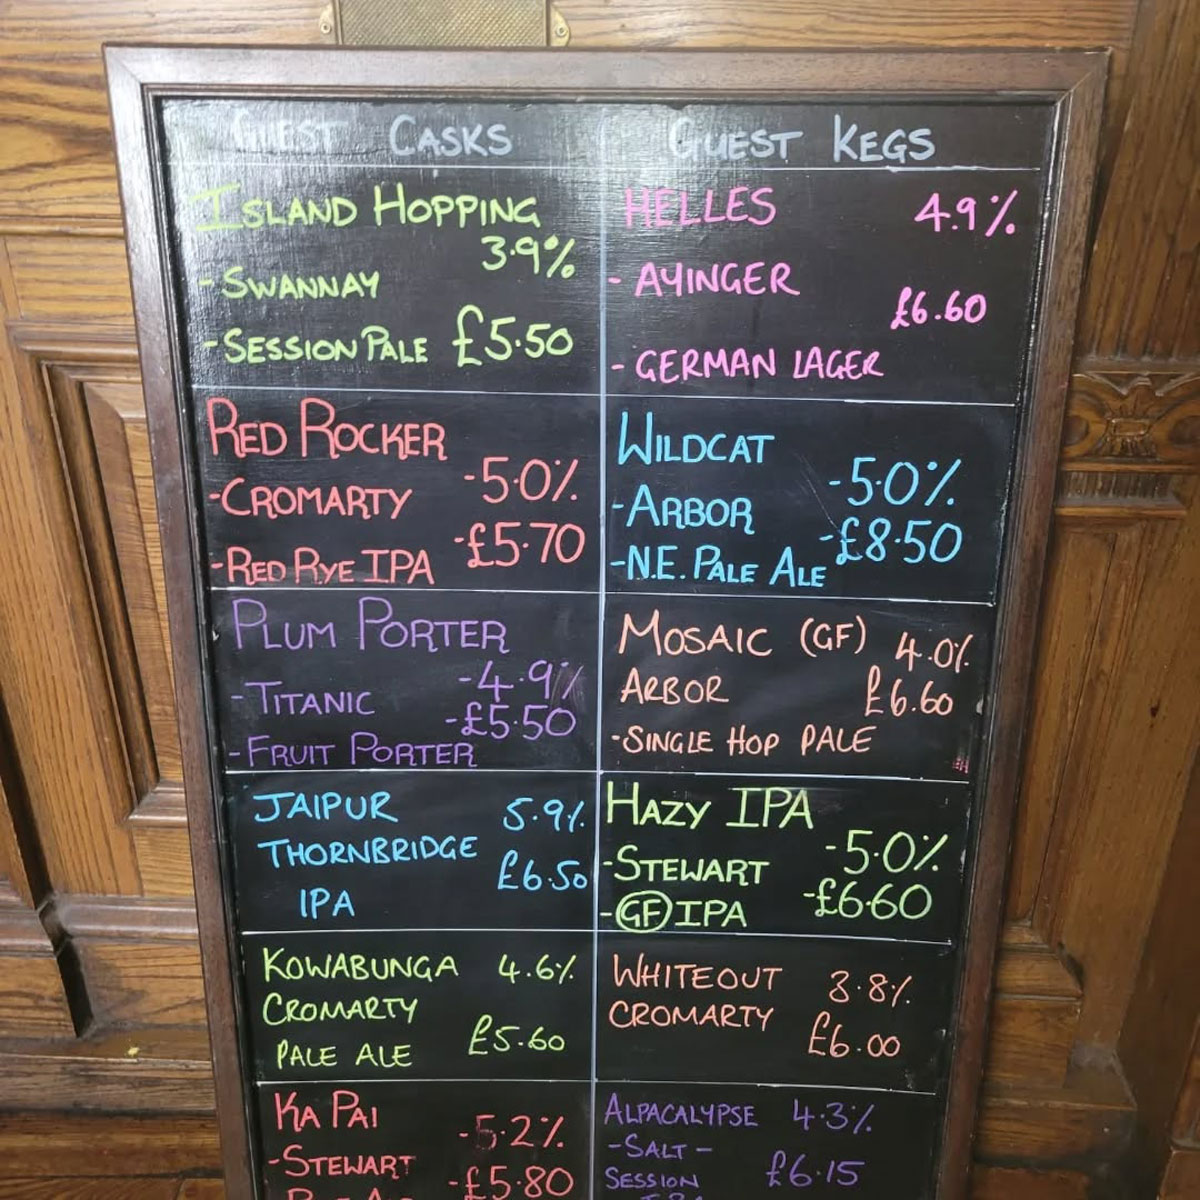 GUEST CASKS
ISLAND HOPPING
3.9%
- SWANNAY
- SESSION PALE £5.50
RED ROCKER
-5.0%
-CROMARTY
-£5.70
-RED RYE IPA
PLUM PORTER
-4.9%
-TITANIC
-£5.50
-FRUIT PORTER
JAIPUR 5.9%
THORNBRIDGE
£6.50
IPA
KOWABUNGA 4.6%
CROMARTY
£5.60
PALE ALE
KA PAI
-5.2%
-STEWART
-£5.80
GUEST KEGS
HELLES 4.9%
- AYINGER
£6.60
- GERMAN LAGER
WILDCAT
-5.0%
-ARBOR
-£8.50
-N.E. PALE ALE
MOSAIC (GF) 4.0%
ARBOR £6.60
-SINGLE HOP PALE
HAZY IPA
-5.0%
-STEWART
-£6.60
-GF IPA
WHITEOUT 3.8%
CROMARTY
£6.00
ALPACALYPSE 4.3%
-SALT-
£6.15
SESSION